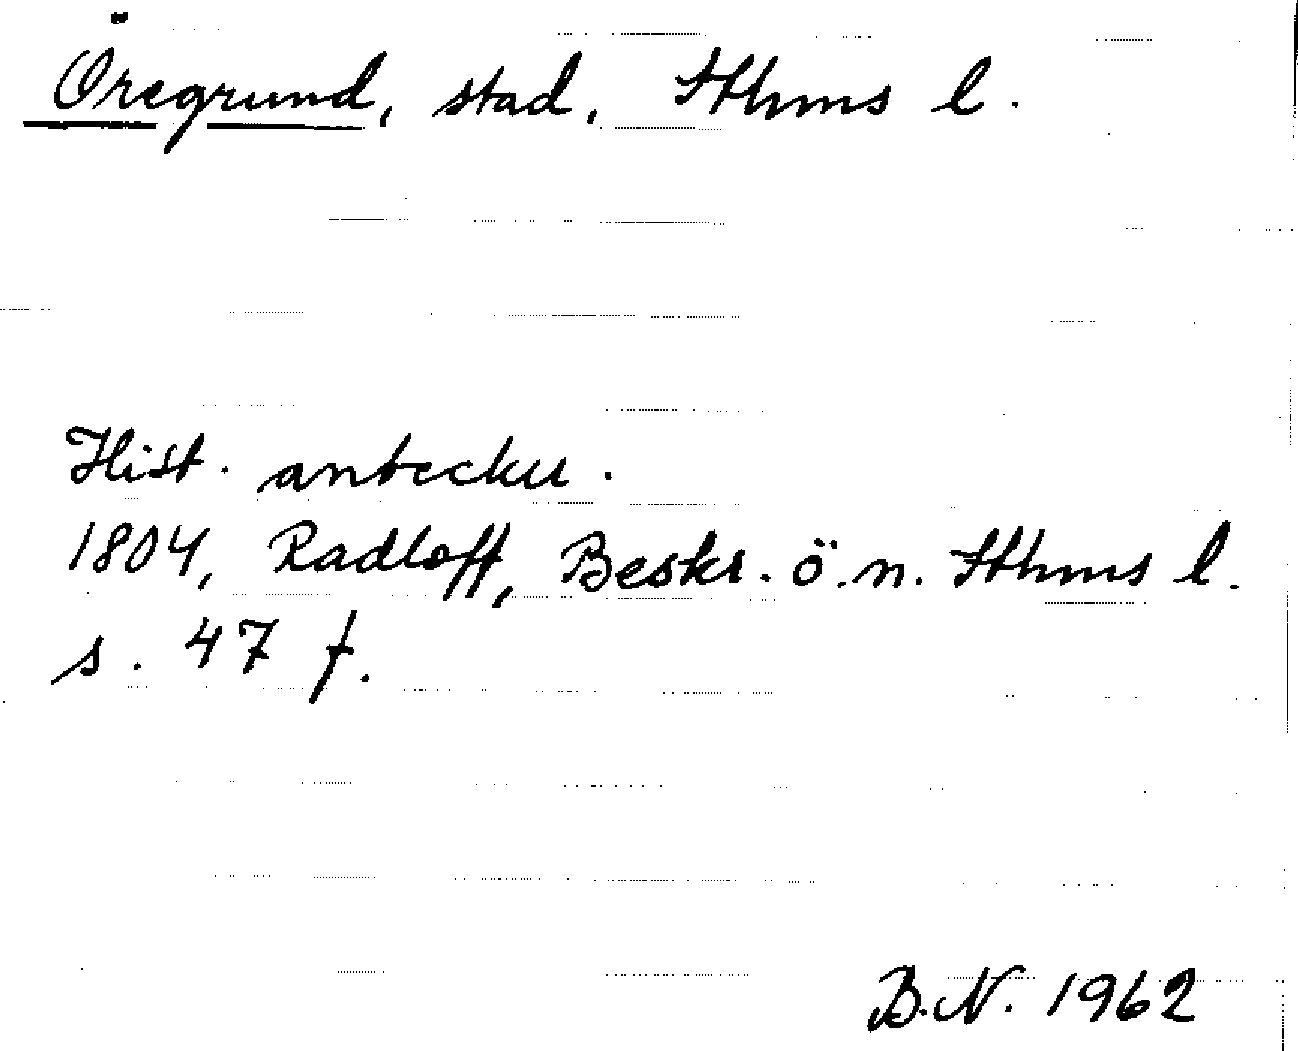 Öregrund, stad, Sthms l.
Hist. anteckn.
1804, Radloff, Beskr. ö. n. Sthms l.
s. 47 f.
B.N. 1962